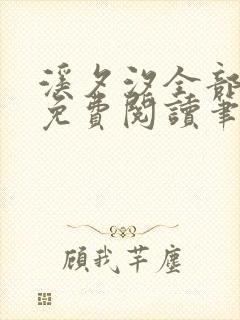 溪夕汐全部
免費閱讀筆
顧我芊塵